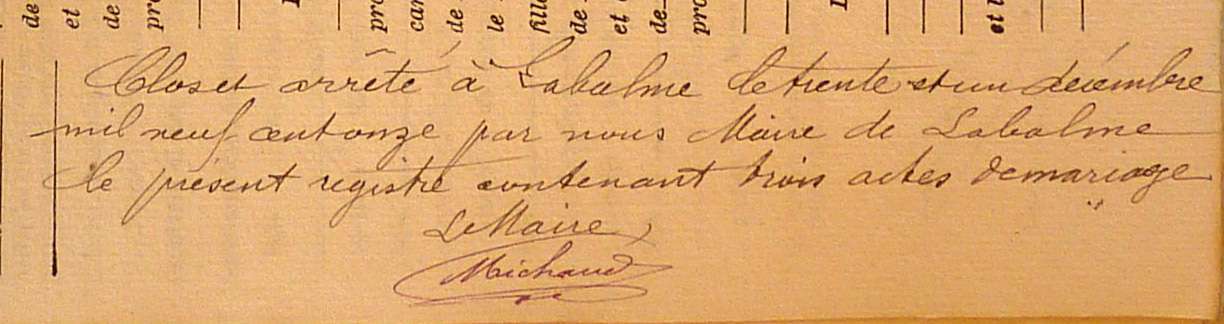 de
et
de
pro
pro
can
de
le
fille
de
et
de
pro
et l
Clos et arrêté à Labalme le trente et un décembre
mil neuf cent onze par nous Maire de Labalme
le présent registre contenant trois actes de mariage
Le Maire,
Michaud